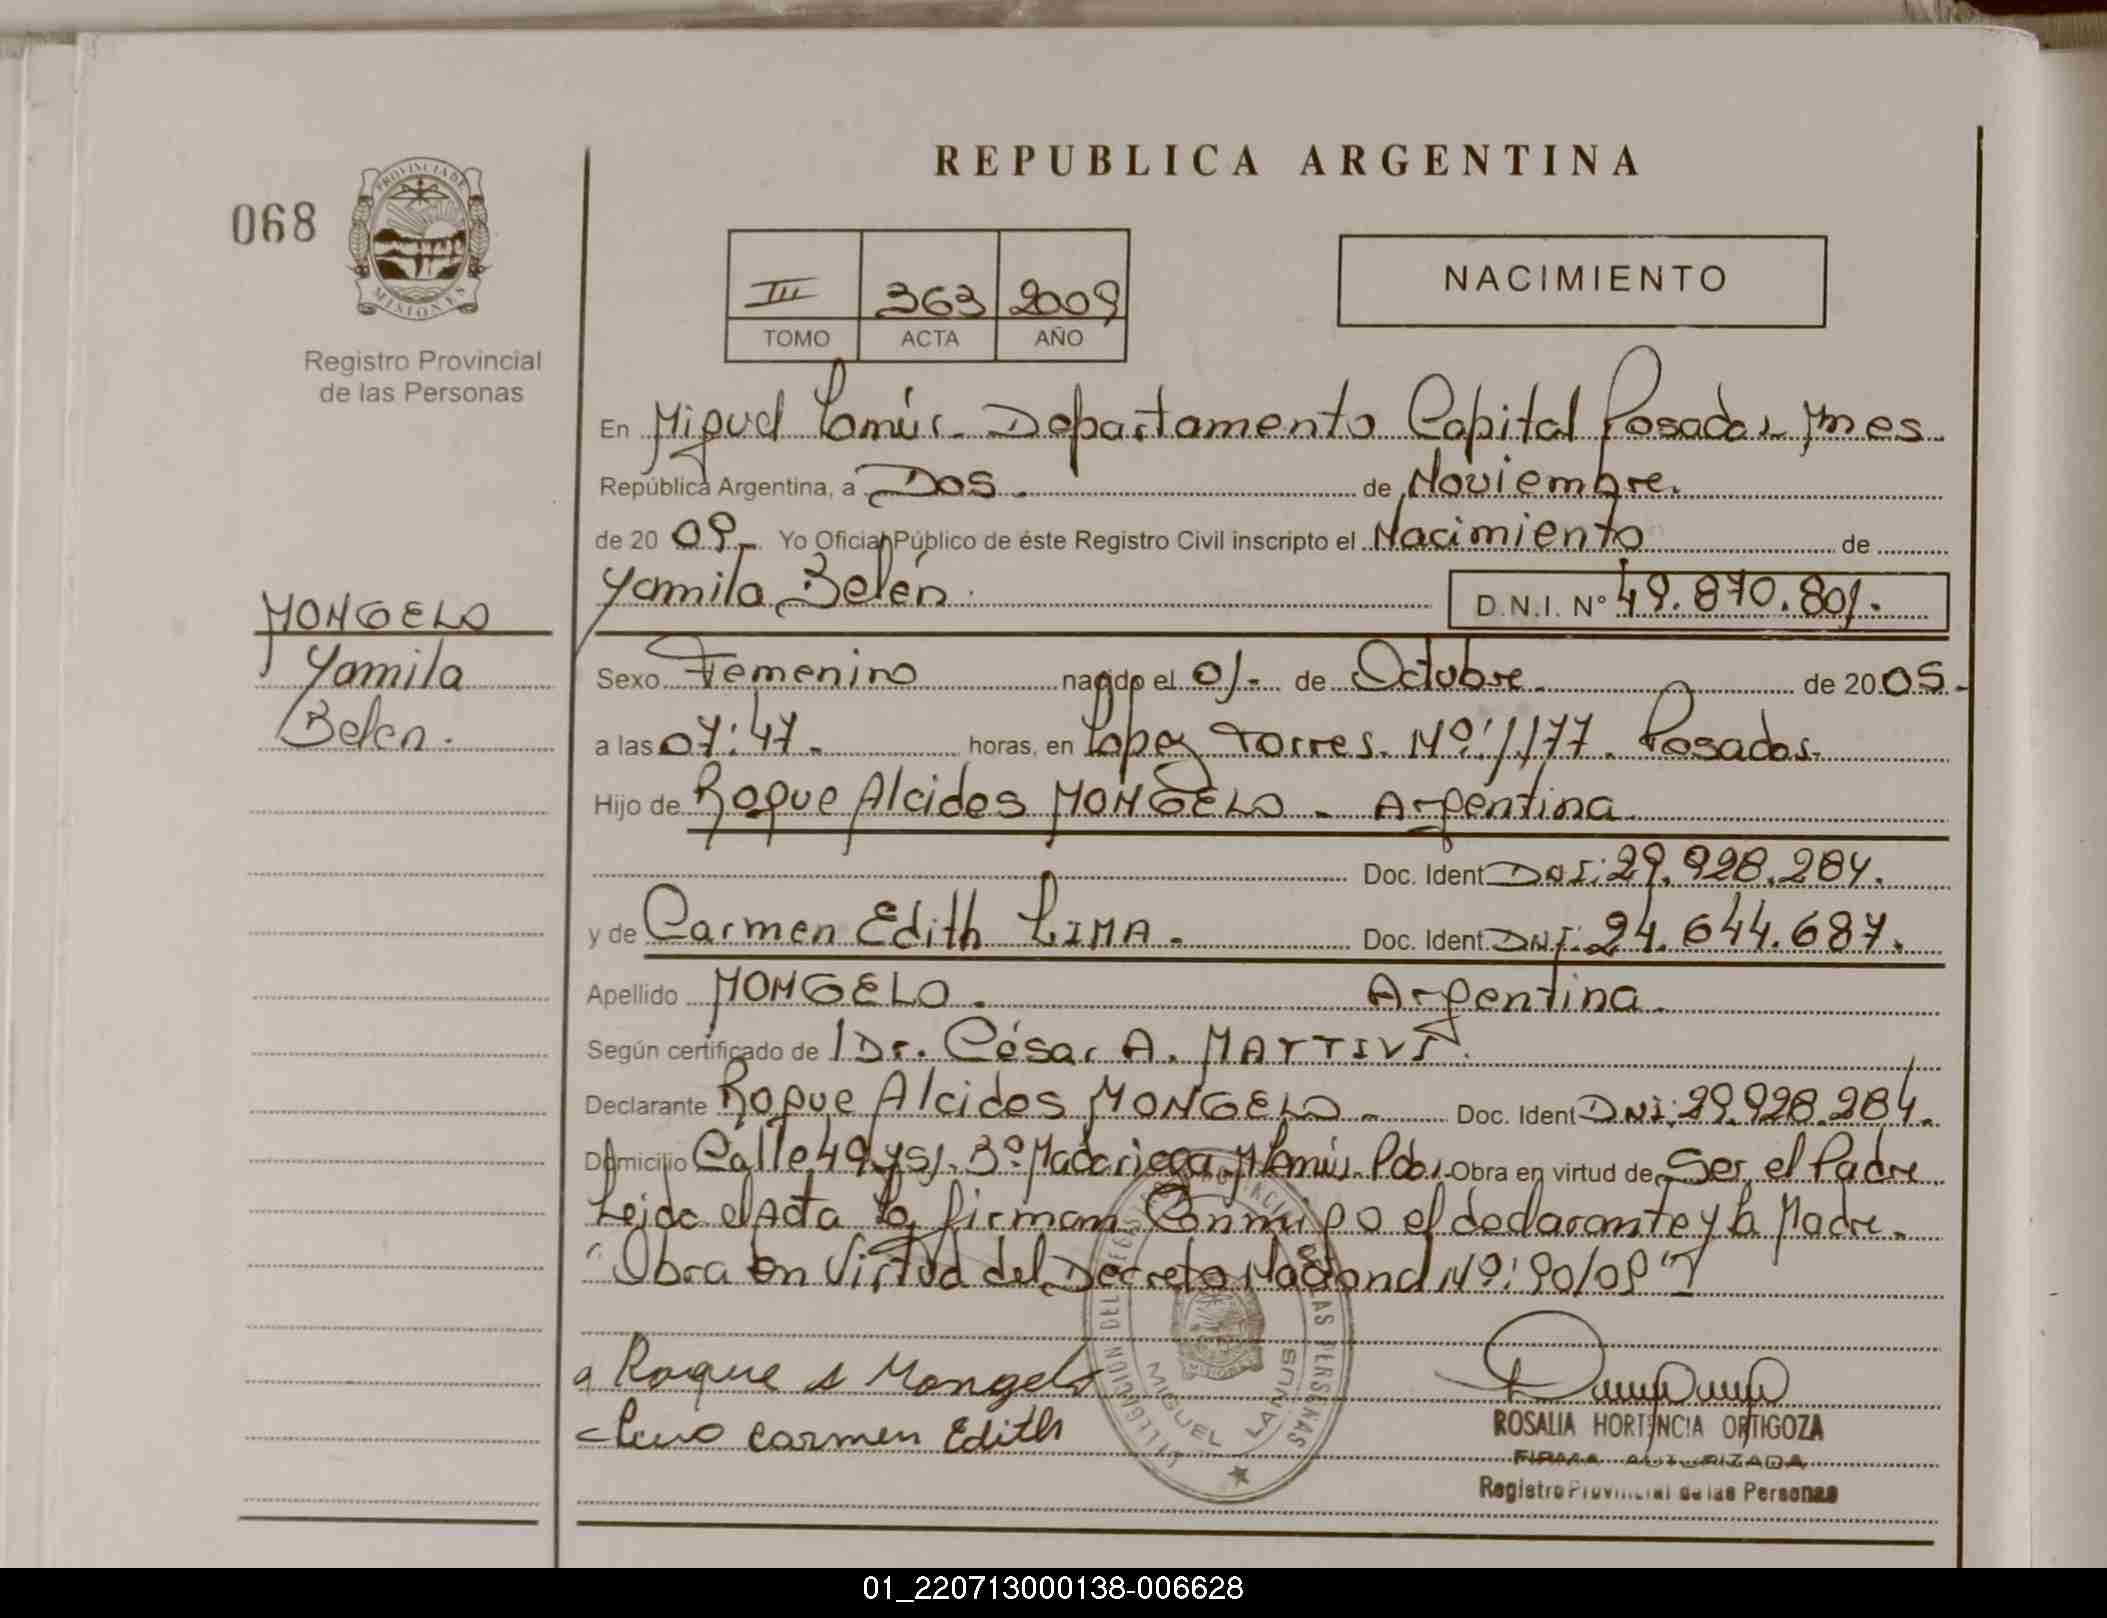 REPUBLICA ARGENTINA
068
PROVINCIA DE
MISIONES
Registro Provincial
de las Personas
III 363 2009
TOMO ACTA AÑO
NACIMIENTO
En Miguel Lanús. Departamento Capital Posadas Mnes
República Argentina, a Dos. de Noviembre.
de 20 09. Yo Oficial Público de éste Registro Civil inscripto el Nacimiento de
Yamila Belén. D.N.I. Nº 49.870.801.
MONGELO
Yamila
Belen.
Sexo Femenino nacido el 01. de Octubre. de 20 05.-
a las 07:47. horas, en Lopez Torres. Nº: 1.177. Posadas.
Hijo de Roque Alcides MONGELO - Argentina.
Doc. Ident DNI: 29.928.284.
y de Carmen Edith LIMA. Doc. Ident. DNI: 24.644.687.
Apellido MONGELO. Argentina.
Según certificado de Dr. César A.
Declarante Roque Alcides MONGELO - Doc. Ident DNI: 29.928.284.
Domicilio Calle 49 y 51. Bº Madariaga M. Lanús. Pdas. Obra en virtud de Ser el Padre
Leida el Acta la firman Conmigo el declarante y la Madre.
"Obra en Virtud del Decreto Nacional Nº: 90/09"
DELEGACION DEL REGISTRO PROVINCIAL DE LAS PERSONAS
MIGUEL LANUS
Roque A Mongelo
Carmen Edith
ROSALIA HORTENCIA ORTIGOZA
FIRMA AUTORIZADA
Registro Provincial de las Personas
01_220713000138-006628